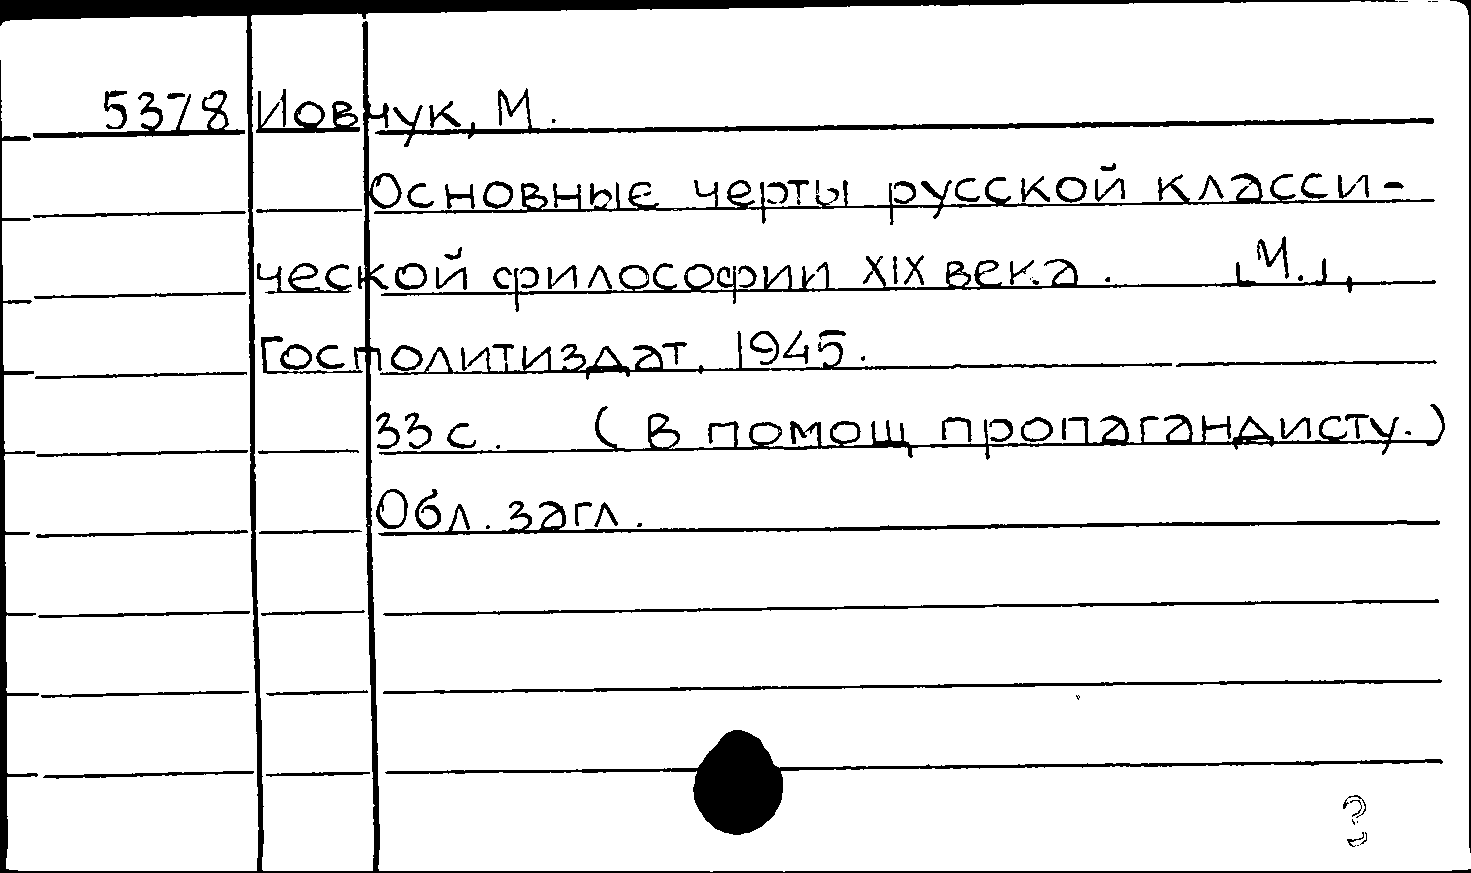 5378 Иовчук, М.
Основные черты русской класси-
ческой философии XIX века. [М.],
Госполитиздат, 1945.
33 с. (В помощ пропагандисту.)
Обл. загл.
?